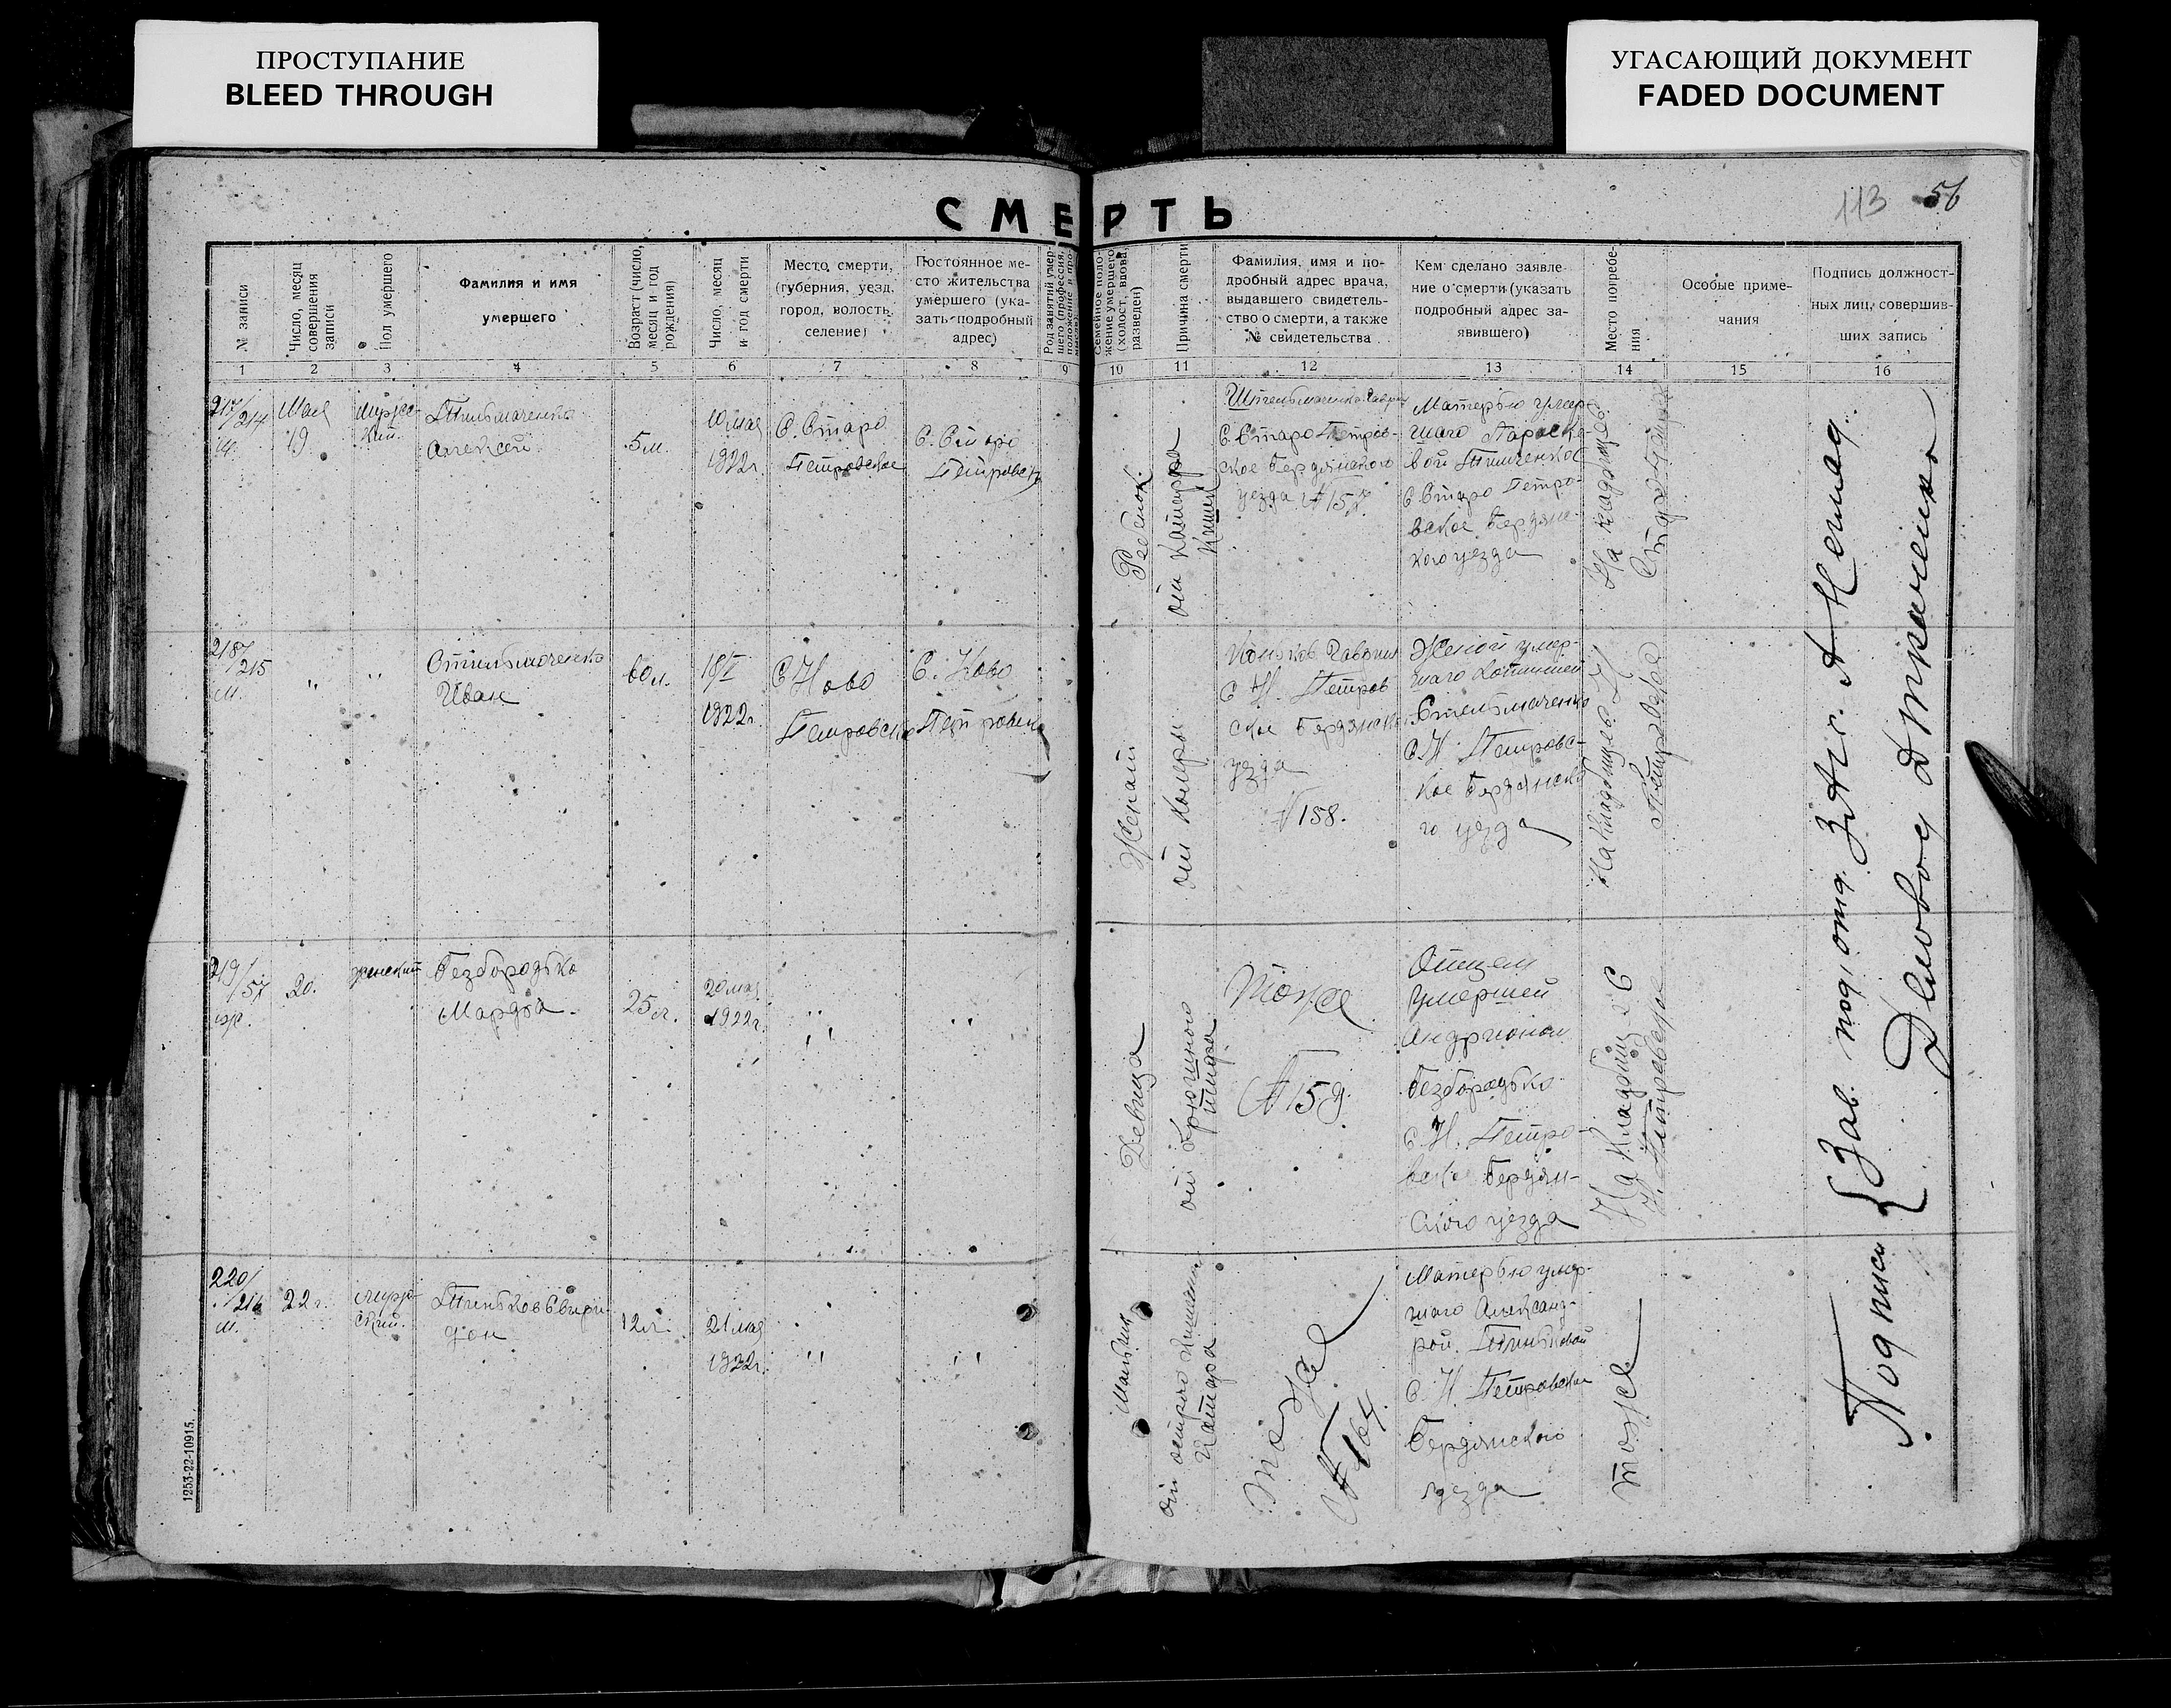 ПРОСТУПАНИЕ
BLEED THROUGH
УГАСАЮЩИЙ ДОКУМЕНТ
FADED DOCUMENT
113 56
СМЕРТЬ
№ записи
Число, месяц
совершения
записи
Пол умершего
Фамилия и имя
умершего
Возраст (число,
месяц и год
рождения)
Число, месяц
и год смерти
Место смерти,
(губерния, уезд,
город, волость,
селение)
Постоянное ме-
сто жительства
умершего (ука-
зать подробный
адрес)
Род занятий умер-
шего (профессия,
положение в про-
Семейное поло-
жение умершего
(холост, вдова,
разведен)
Причина смерти
Фамилия, имя и по-
дробный адрес врача,
выдавшего свидетель-
ство о смерти, а также
№ свидетельства
Кем сделано заявле-
ние о смерти (указать
подробный адрес за-
явившего)
Место погребе-
ния
Особые приме-
чания
Подпись должност-
ных лиц, совершив-
ших запись
1 2 3 4 5 6 7 8 9 10 11 12 13 14 15 16
217/214
м.
Мая
19
Мужс-
кий.
Алексей
5м.
10 мая
1922г.
С. Старо
Петровское
С. Старо
Петровск
Ребенок
от катарра
Кишек
С. Старо Петров-
ское Бердянского
уезда №157
Матерью умер-
шаго Параске-
вой
С Старо Петро-
вское Бердянс-
кого уезда
На кладбище
218/215
м.
"
"
Стильмаченко
Иван
60л.
18/V
1922г.
С Ново
Петровское
С. Ново
Петровск
Женат
от холеры
С Н. Петров
ское Бердянск
уезда
№158.
Женой умер-
шаго
Стельмаченко
С. Н. Петровс-
кое Бердянско
го уезда
На кладбище Н
Петровское
219/57
жр.
20.
женский
Безбородько
Марфа
25л.
20 мая
1922г.
" "
" "
Девица
от брюшного
тифа
Тоже
№159
Отцем
умершей
Андрионом
Безбородько
С. Н. Петро-
вское Бердян-
ского уезда
На Кладбище С
Н. Петровское
220/216
м.
22г.
мужс-
ский.
Свири-
дон
12л.
21 мая
1922г.
" "
" "
Мальчик
от острого
Катара
Тоже
№164.
Матерью умер-
шаго Александ-
рой
С. Н. Петровское
Бердянского
уезда
тоже
Подписи { Зав. подотд. ЗАГС
Деловод Д Ткаченко
1253-22-10915.